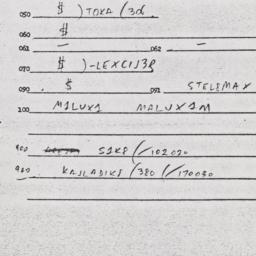 050 $ ) TOXA (3d
060 $
061 — 062 —
070 $ )-LEXCIJ3
090 $ 091 STELEMAX
100 MALUX1 MALUX1M
900 S1KE (/102020
980 KAJLADIKE (380 (/170030